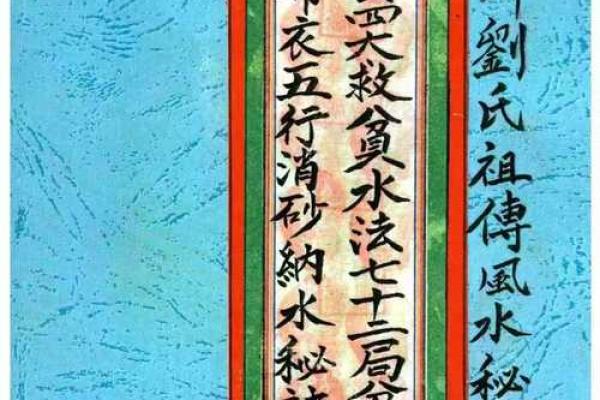 劉氏祖傳風水秘
四大救貧水法七十二局
衣五行消砂納水秘